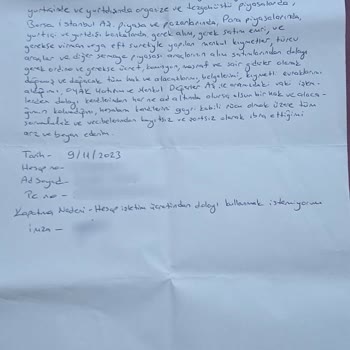 yurtiçinde ve yurtdışında organize ve tezgahüstü piyasalarda,
Borsa İstanbul AŞ. piyasa ve pazarlarında, Para piyasalarında,
yurtiçi ve yurtdışı bankalarda gerek alım, gerek satım emri, ve
gerekse virman veya eft suretiyle yapılan menkul kıymetler, türev
araçlar ve diğer sermaye piyasası araçlarının alım satımlarından dolayı
gerek ordino ve gerekse ücret, komisyon, masraf ve sair gider olarak
doğmuş ve doğacak tüm hak ve alacaklarımı, belgelerimi, kıymetli evraklarımı
aldığımı, OYAK Yatırım Menkul Değerler AŞ ile aramdaki vaki işlem-
lerden dolayı kendisinden her ne ad altında olursa olsun bir hak ve alaca-
ğımın kalmadığını, hesabımı kendilerini gayri kabili rücu olmak üzere tüm
sorumluluk ve vecibelerinden kayıtsız ve şartsız olarak ibra ettiğimi
arz ve beyan ederim.
Tarih - 9/11/2023
Hesap no -
Ad Soyad
TC no -
Kapatma Nedeni - Hesap işletim ücretinden dolayı kullanmak istemiyorum
İmza -